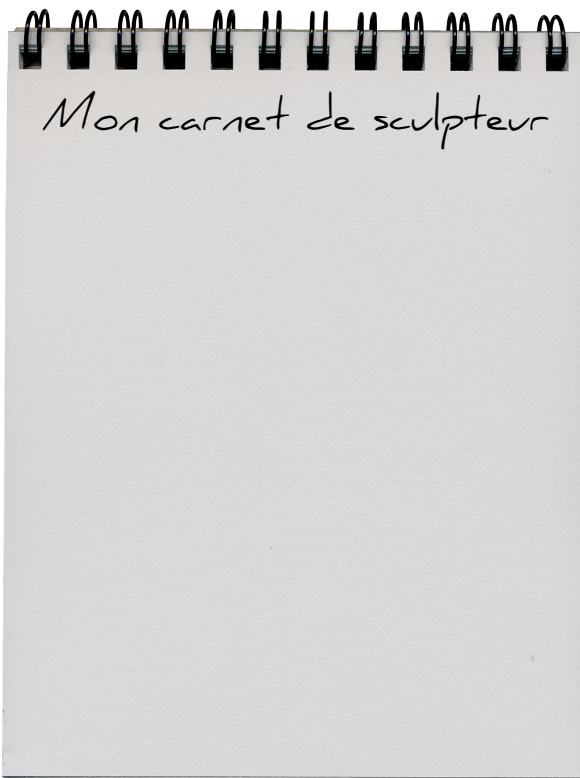 Mon carnet de sculpteur